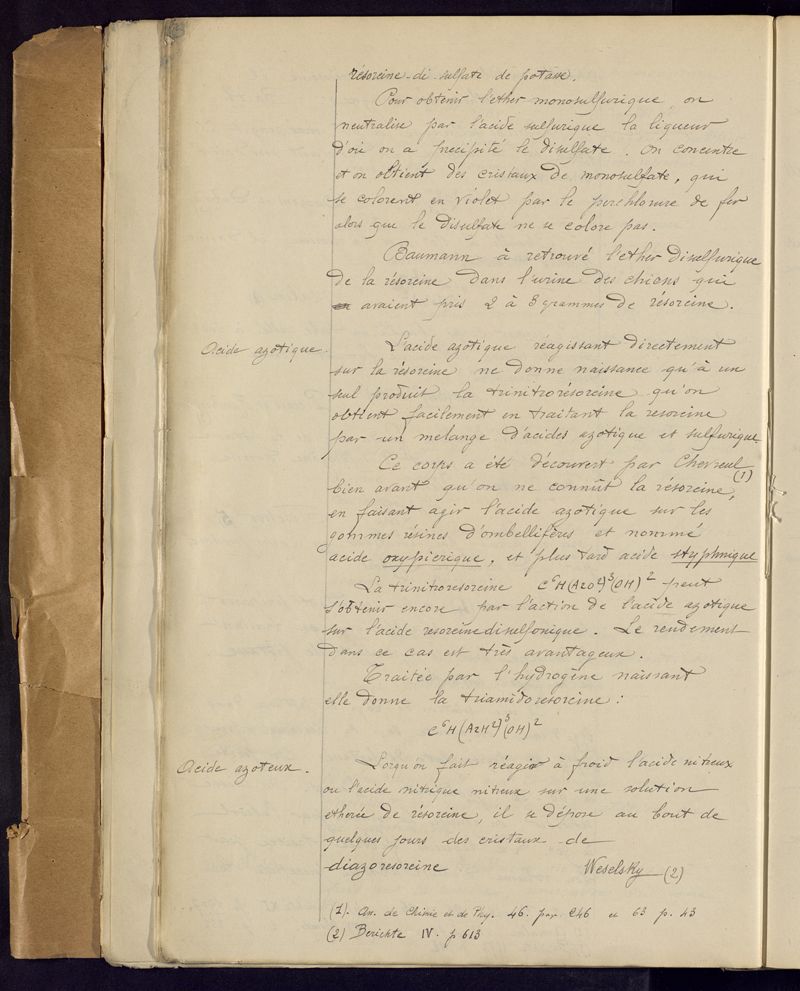 résorcine-di-sulfate de potasse.
Pour obtenir l'ether monosulfurique, on
neutralise par l'acide sulfurique la liqueur
d'où on a precipité le disulfate. On concentre
et on obtient des cristaux de monosulfate, qui
se colorent en violet par le perchlorure de fer
alors que le disulfate ne se colore pas.
Baumann à retrouvé l'ether disulfurique
de la résorcine dans l'urine des chiens qui
avaient pris 2 à 3 grammes de résorcine.
Acide azotique.
L'acide azotique réagissant directement
sur la résorcine ne donne naissance qu'à un
seul produit la trinitrorésorcine qu'on
obtient facilement en traitant la resorcine
par un melange d'acides azotique et sulfurique.
Ce corps a été découvert par Chevreul
bien avant qu'on ne connût la résorcine, (1)
en faisant agir l'acide azotique sur les
gommes résines d'ombellifères et nommé
acide oxypicrique, et plus tard acide styphnique
La trinitroresorcine C⁶H(AzO²)³(OH)² peut
s'obtenir encore par l'action de l'acide azotique
sur l'acide resorcinedisulfonique. Le rendement
dans ce cas est très avantageux.
Traitée par l'hydrogène naissant
elle donne la triamidoresorcine :
C⁶H(AzH²)³(OH)²
Acide azoteux.
Lorsqu'on fait réagir à froid l'acide nitreux
ou l'acide nitrique nitreux sur une solution
etherée de résorcine, il se dépose au bout de
quelques jours des cristaux de
diazoresorcine Weselsky (2)
(1). An. de Chimie et de Phy. 46. pag 246 et 63 p. 43
(2) Berichte IV. p 613